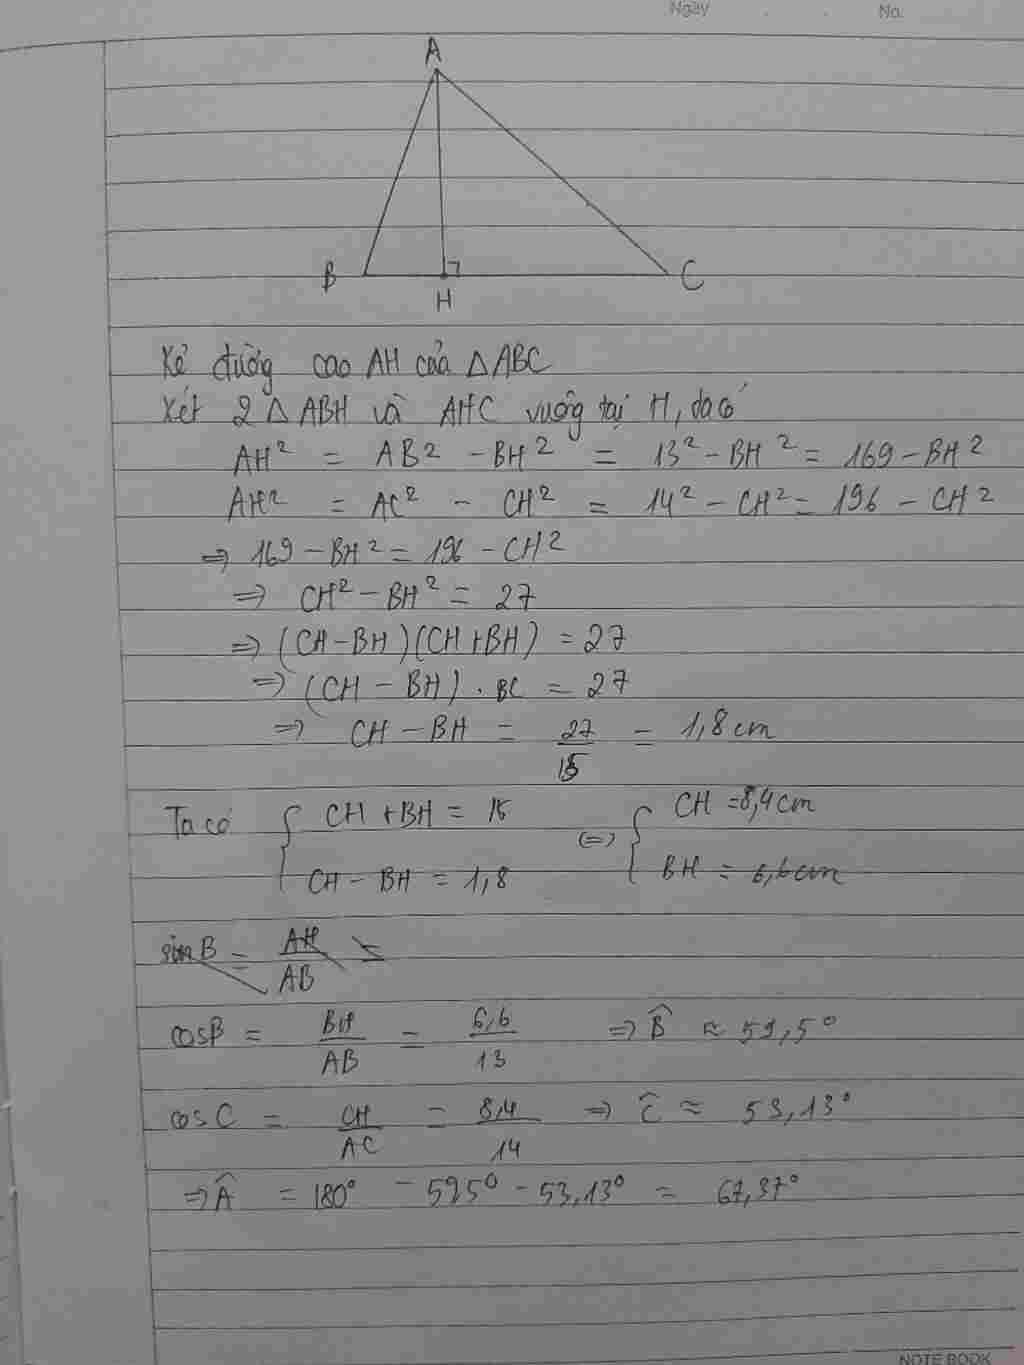 Ngày No.
A
B H C
Kẻ đường cao AH của △ABC
Xét 2 △ ABH và AHC vuông tại H, ta có
AH² = AB² - BH² = 13² - BH² = 169 - BH²
AH² = AC² - CH² = 14² - CH² = 196 - CH²
⇒ 169 - BH² = 196 - CH²
⇒ CH² - BH² = 27
⇒ (CH - BH)(CH + BH) = 27
⇒ (CH - BH) . BC = 27
⇒ CH - BH = 27/15 = 1,8 cm
Ta có { CH + BH = 15 (=) { CH = 8,4 cm
CH - BH = 1,8 BH = 6,6 cm
sin B = AH/AB =
cos B = BH/AB = 6,6/13 ⇒ B̂ ≈ 59,5°
cos C = CH/AC = 8,4/14 ⇒ Ĉ ≈ 53,13°
⇒ Â = 180° - 59,5° - 53,13° = 67,37°
NOTEBOOK